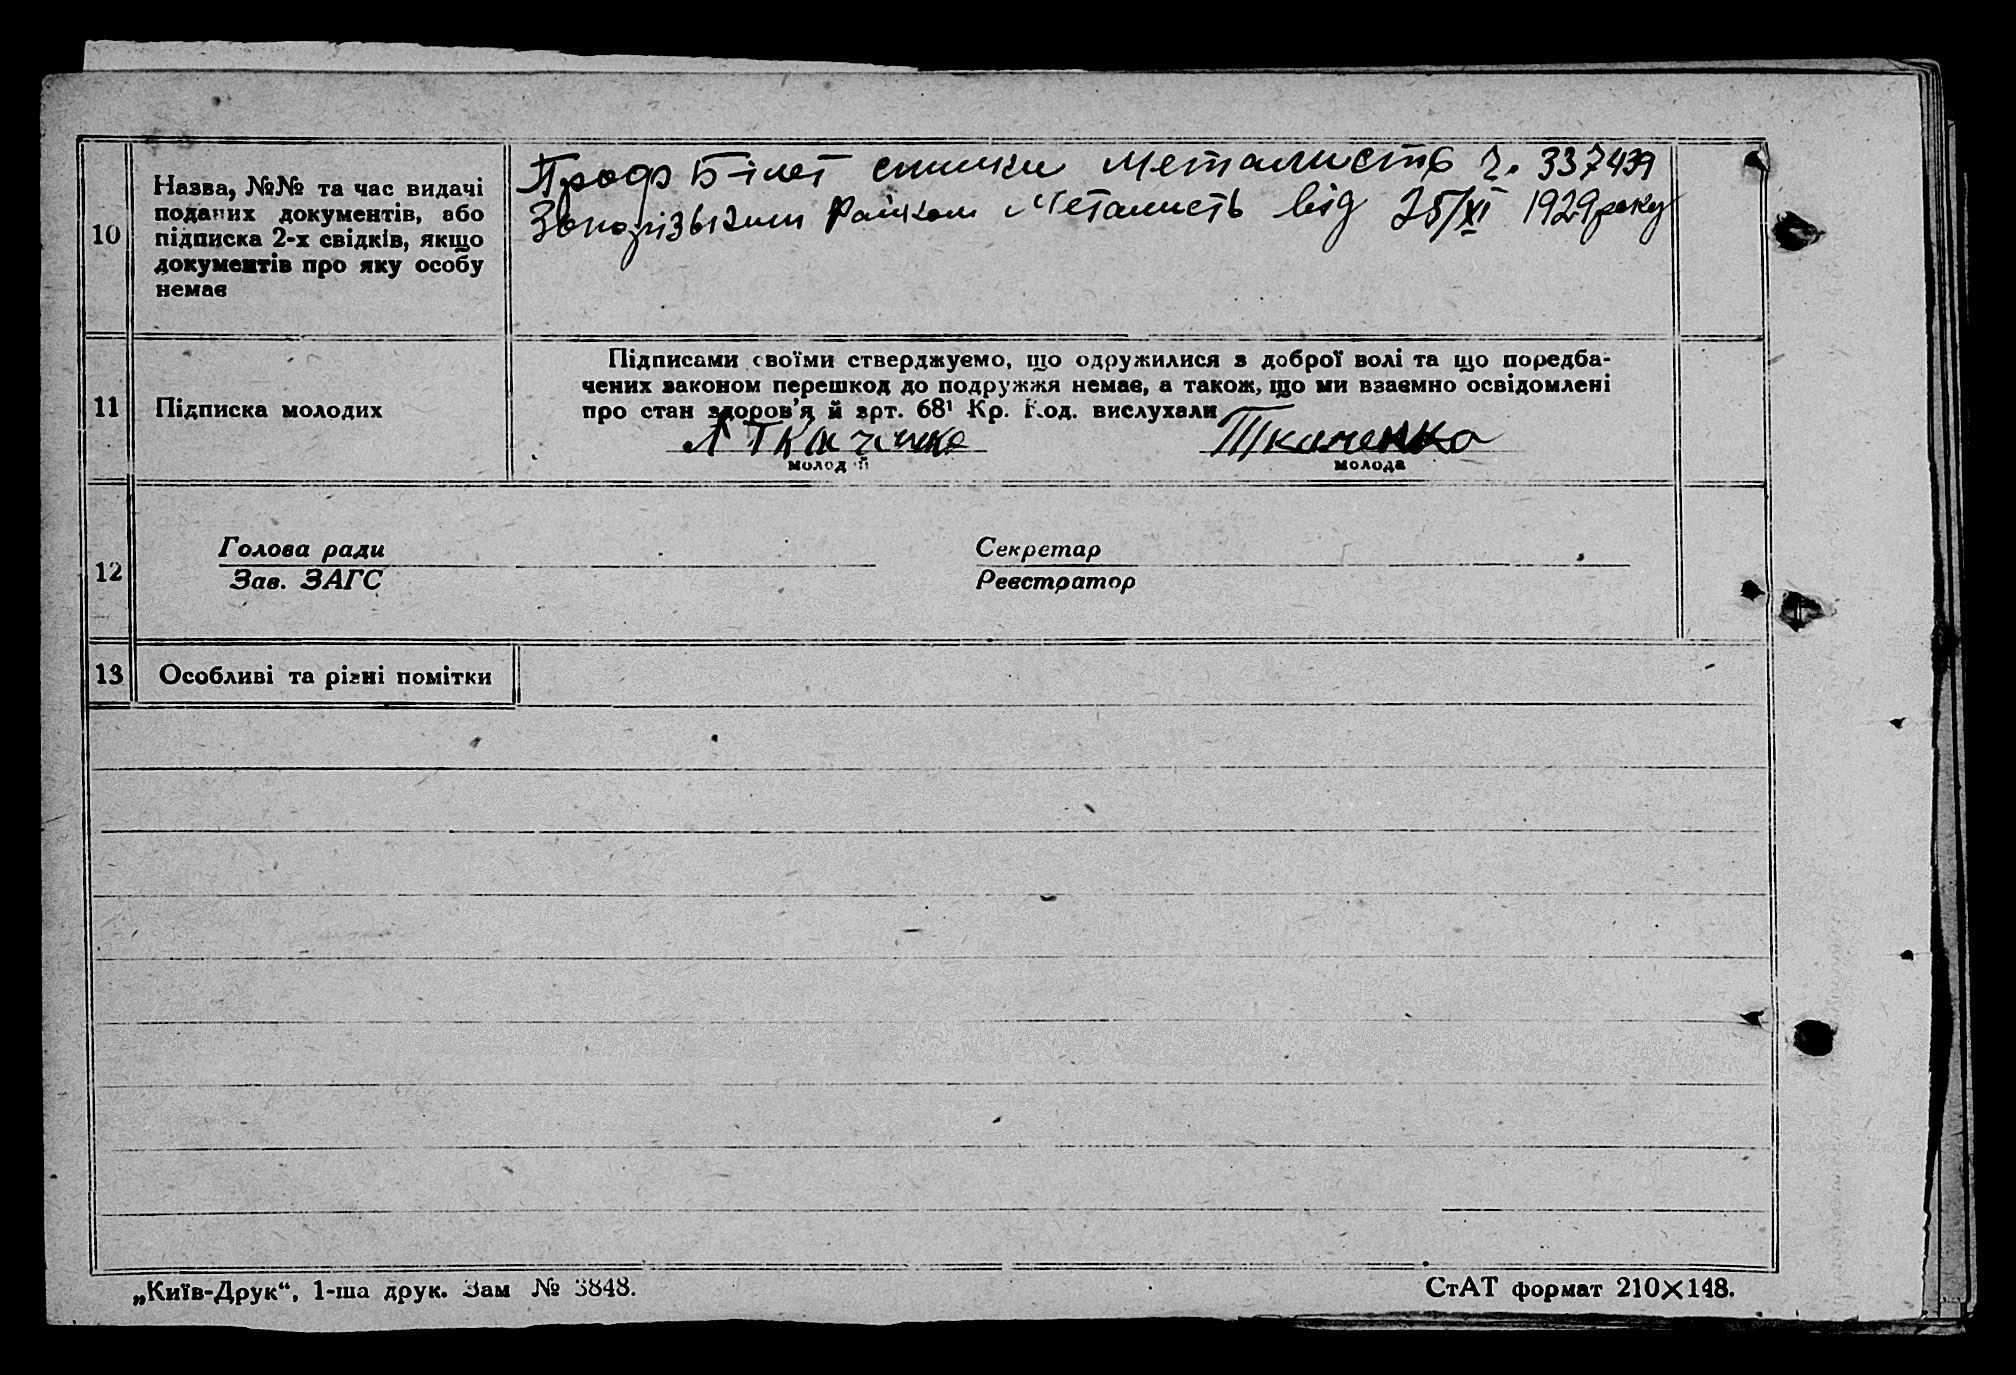 10
Назва, №№ та час видачі
поданих документів, або
підписка 2-х свідків, якщо
документів про яку особу
немає
Проф Білет спилки Металистб ч. 337439
Запорізьким Райкам Металисть від 25/XI 1929 року
11
Підписка молодих
Підписами своїми стверджуємо, що одружилися з доброї волі та що передба-
чених законом перешкод до подружжя немає, а також, що ми взаємно освідомлені
про стан здоров'я й арт. 68¹ Кр. Код. вислухали
Ткаченко
Ткаченко
молодий
молода
12
Голова ради
Зав. ЗАГС
Секретар
Реєстратор
13
Особливі та різні помітки
„Київ-Друк“, 1-ша друк. Зам № 3848.
СтАТ формат 210×148.